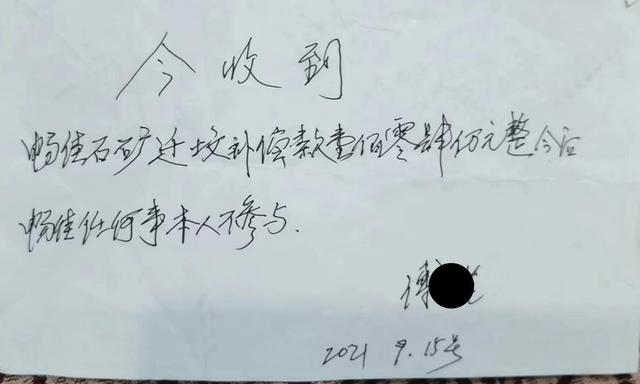 今收到
畅佳石矿迁坟补偿款壹佰零肆万元整今后
畅佳任何事本人不参与.
2021 9.15号